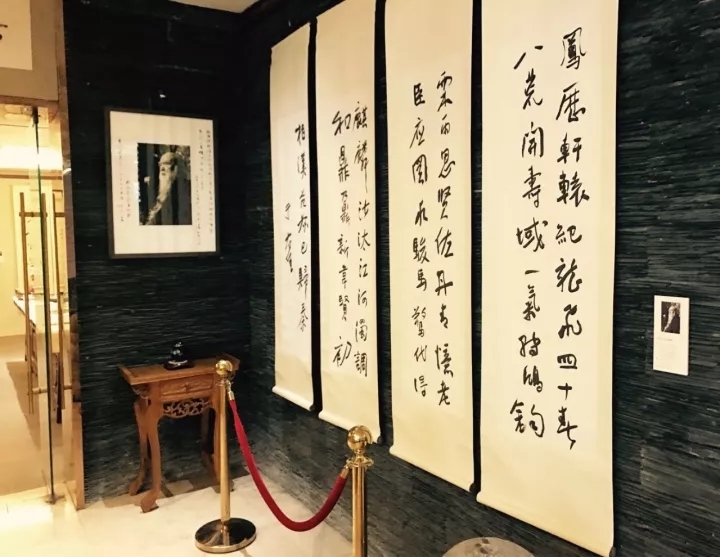 鳳歷軒轅紀龍飛四十春
八荒開壽域一氣轉鴻鈞
霖雨思賢佐丹青憶老
臣應圖求駿馬驚代得
麒麟沙汰江河濁調
和鼎鼐新韋賢初
相漢范叔已歸秦
于右任